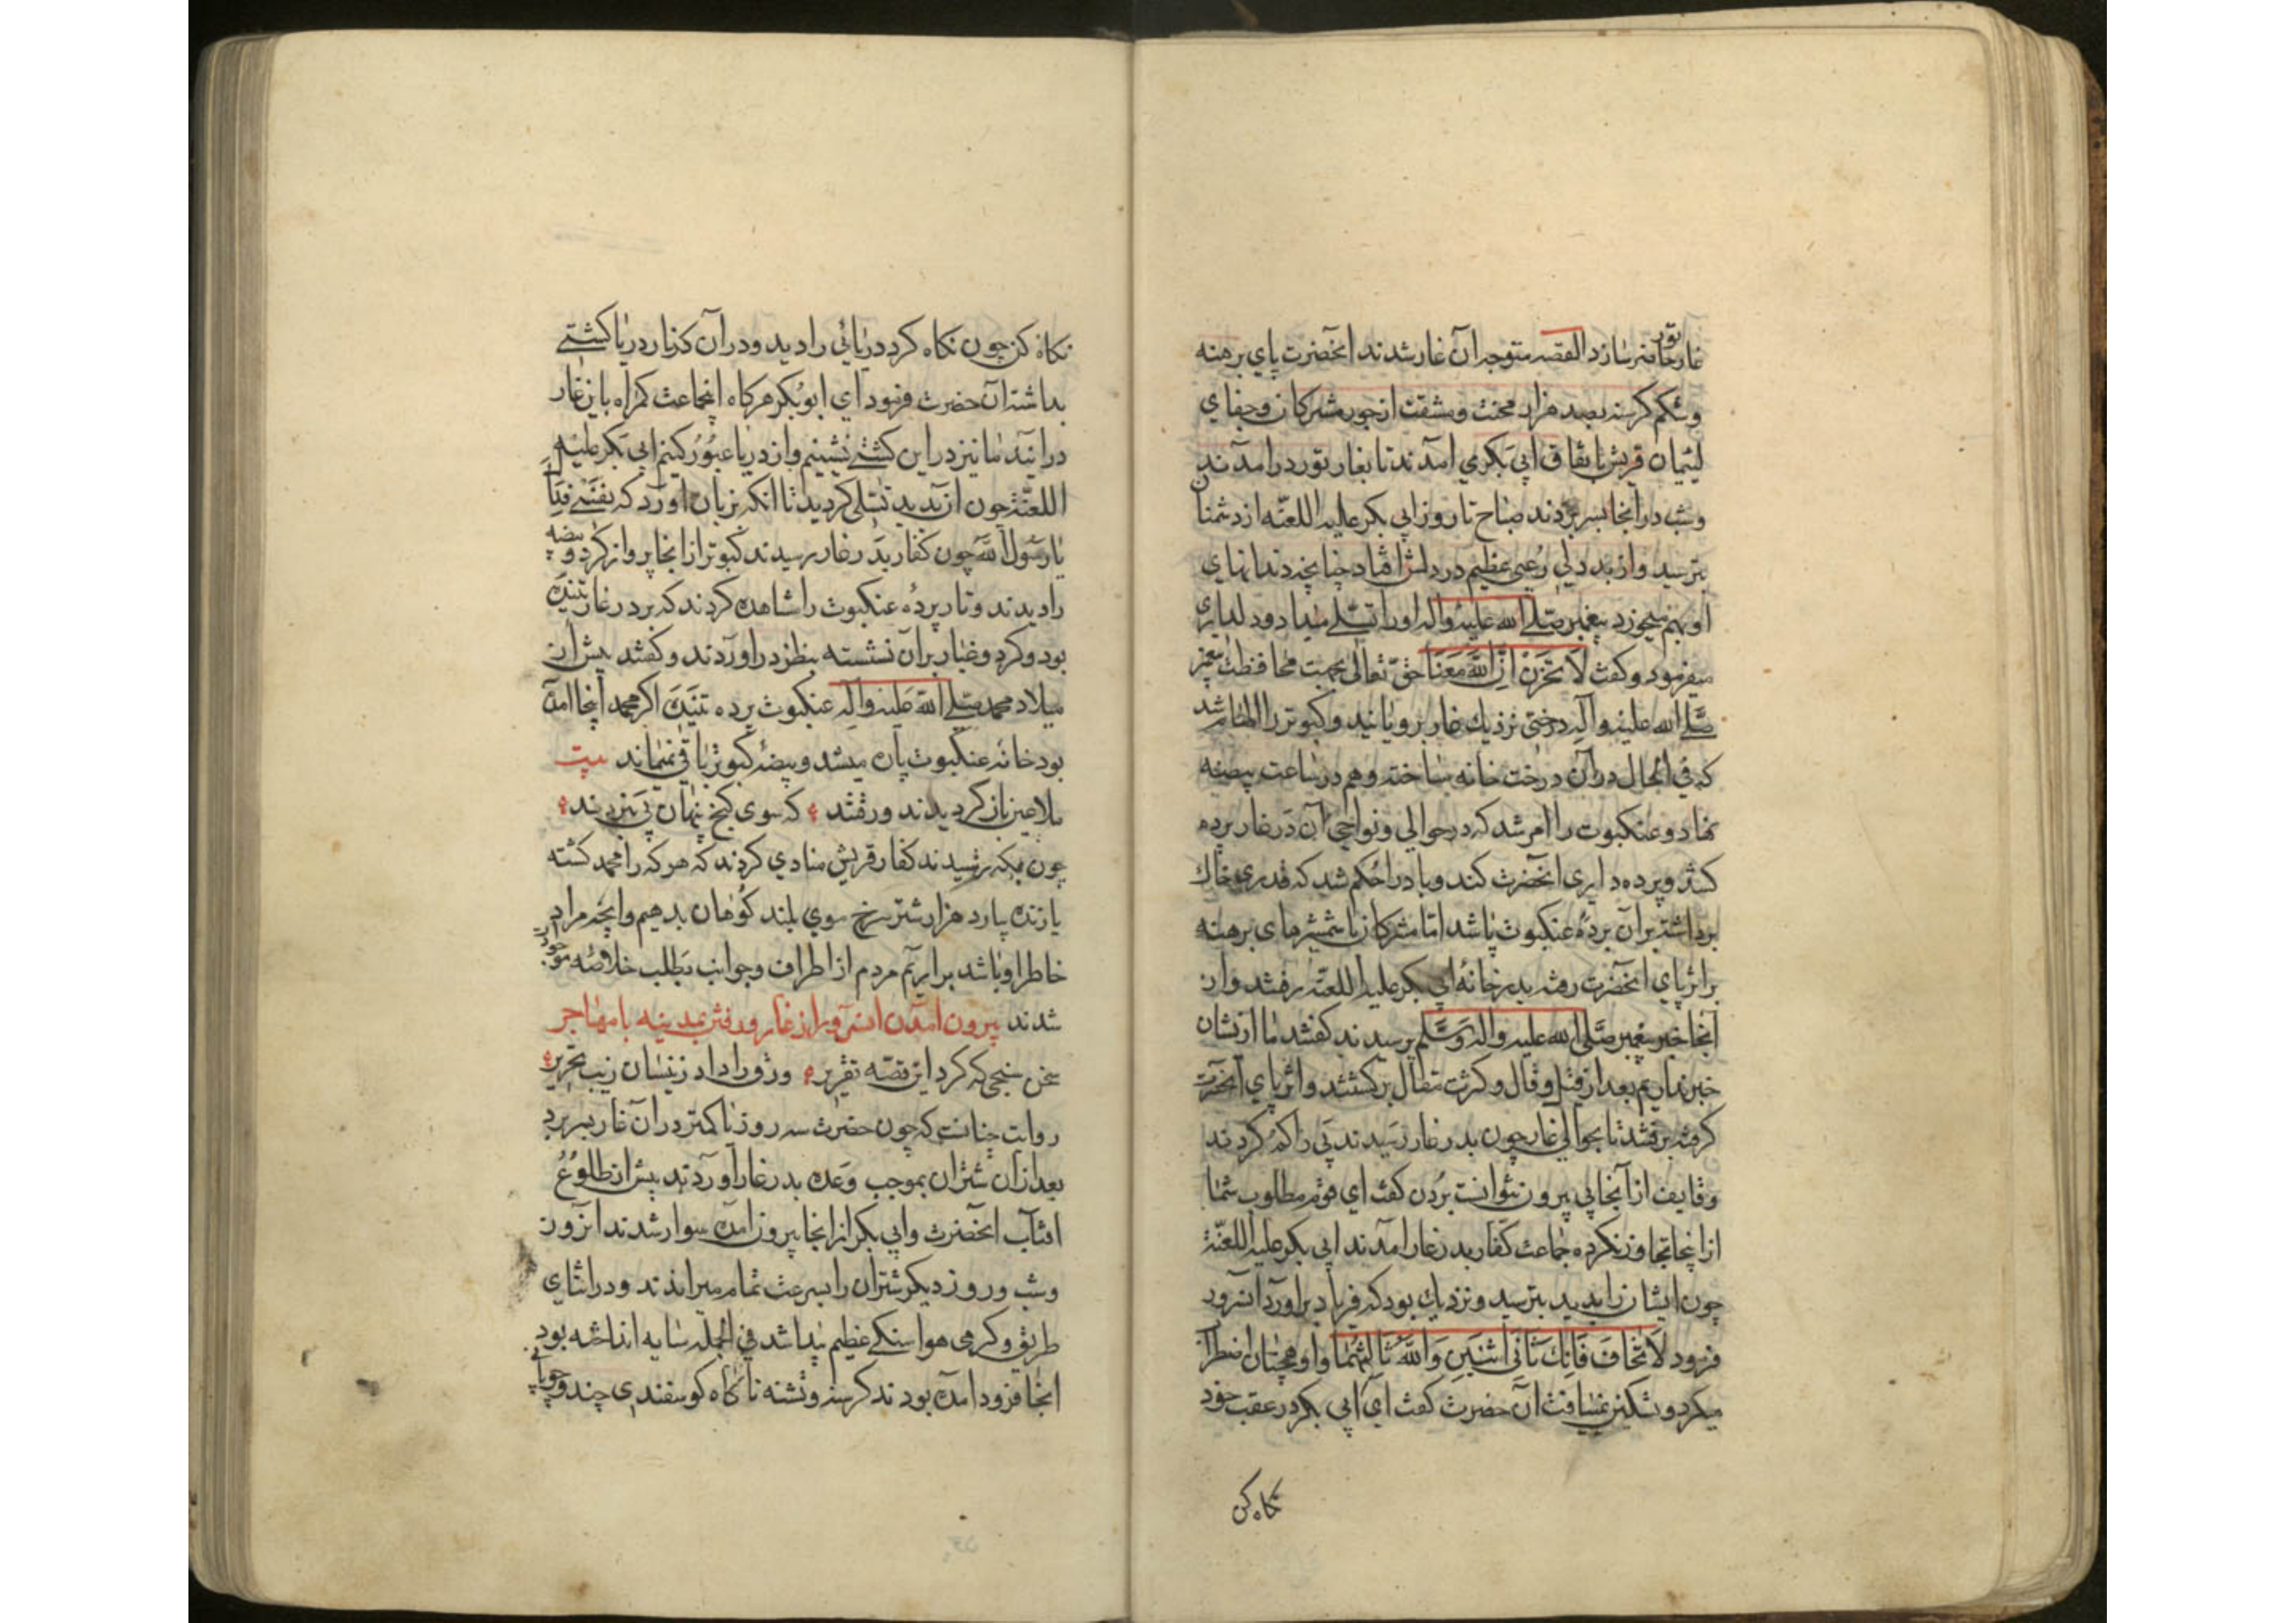 غار ثور
حاضر سازد القصه متوجه آن غار شدند انحضرت پای برهنه
وشکم کرسنه بصد هزار محنت ومشقت از جور مشرکان وجفای
لئیمان قریش باتفاق ابی بکر می آمدند تا بغار ثور درآمدند
وشب در انجا بسر بردند صباح تا روز ابی بکر علیه اللعنه از دشمنا
بترسید واز بددلی رعبی عظیم در دلش افتاد چنانچه دندانهای
او بهم میخورد پیغمبر صلی الله علیه واله اورا تسلی میداد ودلداری
میفرمود وکفت لا تحزن ان الله معنا حق تعالی بجهت محافظت پیغمبر
صلی الله علیه وآله درختی نزدیک غار برویانید وکبوتر را الهام شد
که فی الحال در آن درخت خانه ساخته وهم در ساعت بیضه
نهاد وعنکبوت را امر شد که در حوالی ونواحی آن در غار پرده
کشد وپرده داری انحضرت کند وباد را حکم شد که قدری خاک
برداشته بر آن پرده عنکبوت پاشد اما مشرکان با شمشیرهای برهنه
بر اثر پای انحضرت رفته بدر خانه ابی بکر علیه اللعنه رفتند واز
آنجا خبر پیغمبر صلی الله علیه واله وسلم پرسیدند کفتند ما از ایشان
خبر نداریم بعد از قیل وقال وکثرت مقال برکشتند واثر پای انحضرت
کرفته برفتند تا بحوالی غار چون بدر غار رسیدند پی را کم کردند
وقایف از آنجا پی بیرون نتوانست بردن کفت ای قوم مطلوب شما
از اینجا تجاوز نکرده جماعت کفار بدر غار آمدند ابی بکر علیه اللعنة
چون ایشان را بدید بترسید ونزدیک بود که فریاد براورد آنسرور
فرمود لا تخاف فانک ثانی اثنین والله ثالثهما واو همچنان اضطراب
میکرد وتسکین نمییافت آن حضرت کفت ای ابی بکر در عقب خود
نکاه کن
نکاه کن چون نکاه کرد دریائی را دید ودر آن کنار دریا کشتی
بداشته آن حضرت فرمود ای ابو بکر هرکاه انجماعت کمراه باین غار
درایند ما نیز در این کشتی نشینیم واز دریا عبور کنیم ابی بکر علیه
اللعنة چون آن بدید تسلی کردید تا انکه بزبان اورد که
یا رسول الله چون کفار بدر غار رسیدند کبوتر از انجا پرواز کرد وبیضه
را دیدند وتار پرده عنکبوت را مشاهده کردند که بر در غار تنیده
بود وکرد وغبار بر آن نشسته بنظر دراوردند وکفتند پیش از
میلاد محمد صلی الله علیه وآله عنکبوت پرده تنیده اکر محمد اینجا آمده
بود خانه عنکبوت پاره میشد وبیضه کبوتر باقی نمیماند بیت
ملاعین باز کردیدند ورفتند که سوی کنج پنهان پی نبردند
چون بمکه رسیدند کفار قریش منادی کردند که هر که را محمد کشته
یا زنده بیارد هزار شتر سرخ موی بلند کوهان بدهیم وانچه مراد
خاطر او باشد براریم مردم از اطراف وجوانب بطلب خلاصه موجودات
شدند بیرون آمدن آنسرور از غار ورفتن بمدینه با مهاجر
سخن سنجی که کرد این قصه تقریر ورق را داد زینسان زیب تحریر
روایت چنانست که چون حضرت سه روز یا کمتر در آن غار بسر برد
بعد از آن شتران بموجب وعده بدر غار آوردند پیش از طلوع
افتاب انحضرت وابی بکر از انجا بیرون آمده سوار شدند انروز
وشب وروز دیکر شتران را بسرعت تمام میراندند ودر اثنای
طریق وکرمی هوا سنکی عظیم پیدا شد فی الجمله سایه انداخته بود
انجا فرود آمده بودند کرسنه وتشنه ناکاه کوسفندی چند وچوپانی